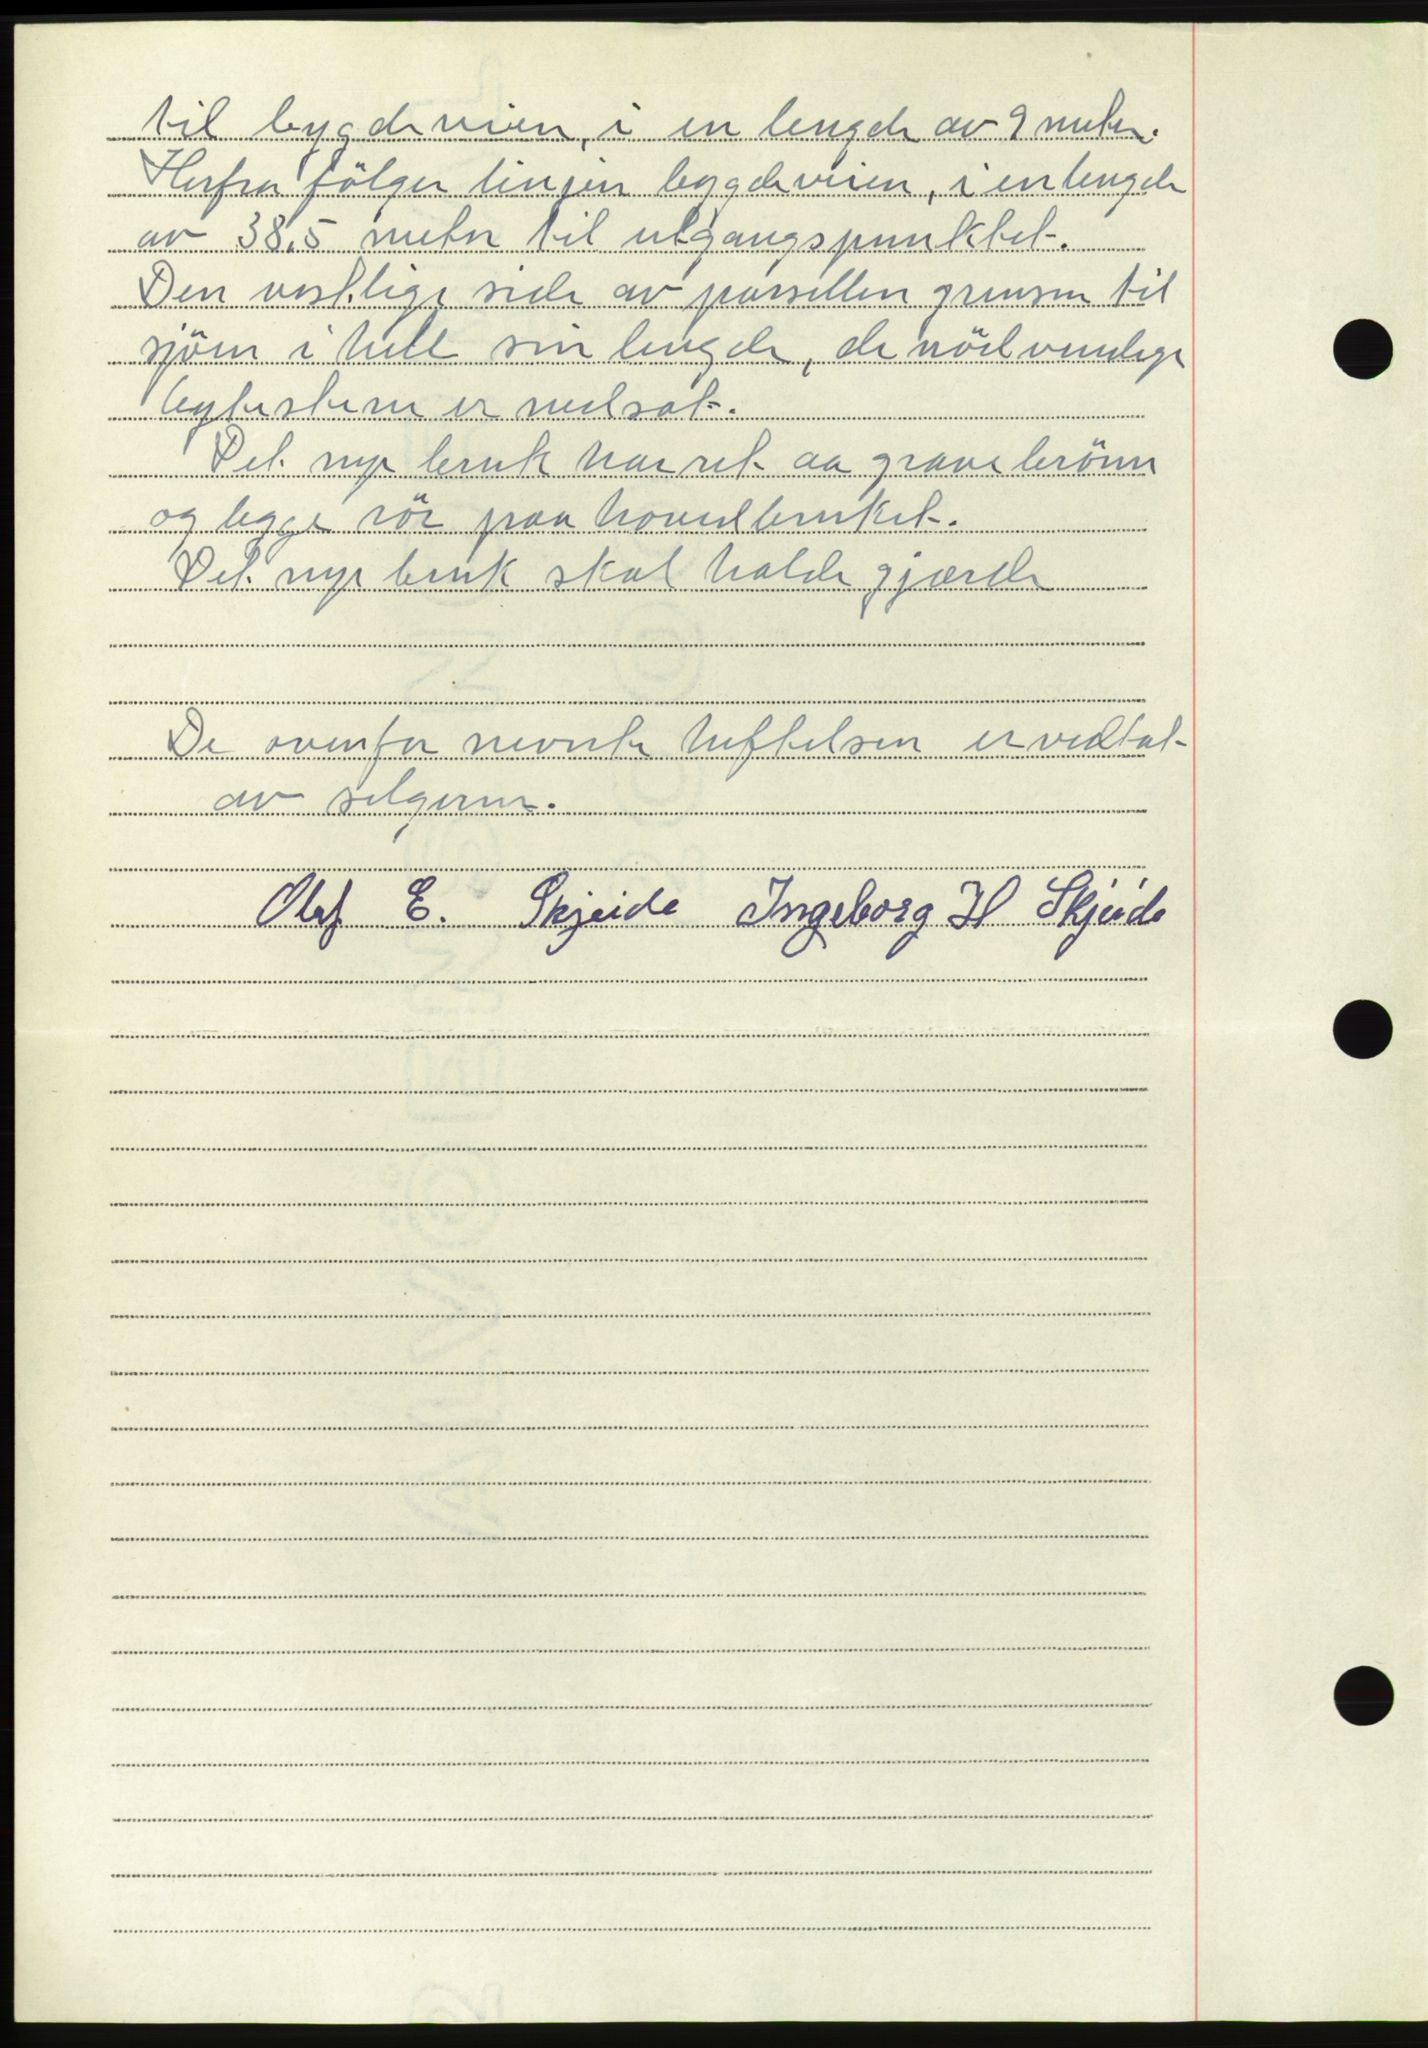 til bygdeveien, i en lengde av 9 meter.
Herfra følger linjen bygdeveien, i en lengde
av 38,5 meter til utgangspunktet.
Den vestlige side av parsellen grenser til
sjöen i hele sin lengde, de nödvendige
bytestene er nedsat.
Det nye bruk har ret aa grave brönn
og legge rör paa hovedbruket.
Det nye bruk skal holde gjærde
De ovenfor nevnte heftelser er vedtat
av selgerne.
Olaf E. Skjeide Ingeborg H Skjeide